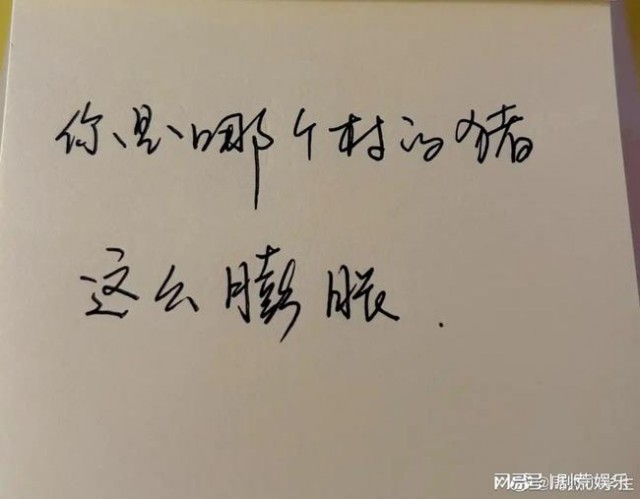 你是哪个村的猪
这么膨胀.
搜狐号@剧荒娱乐